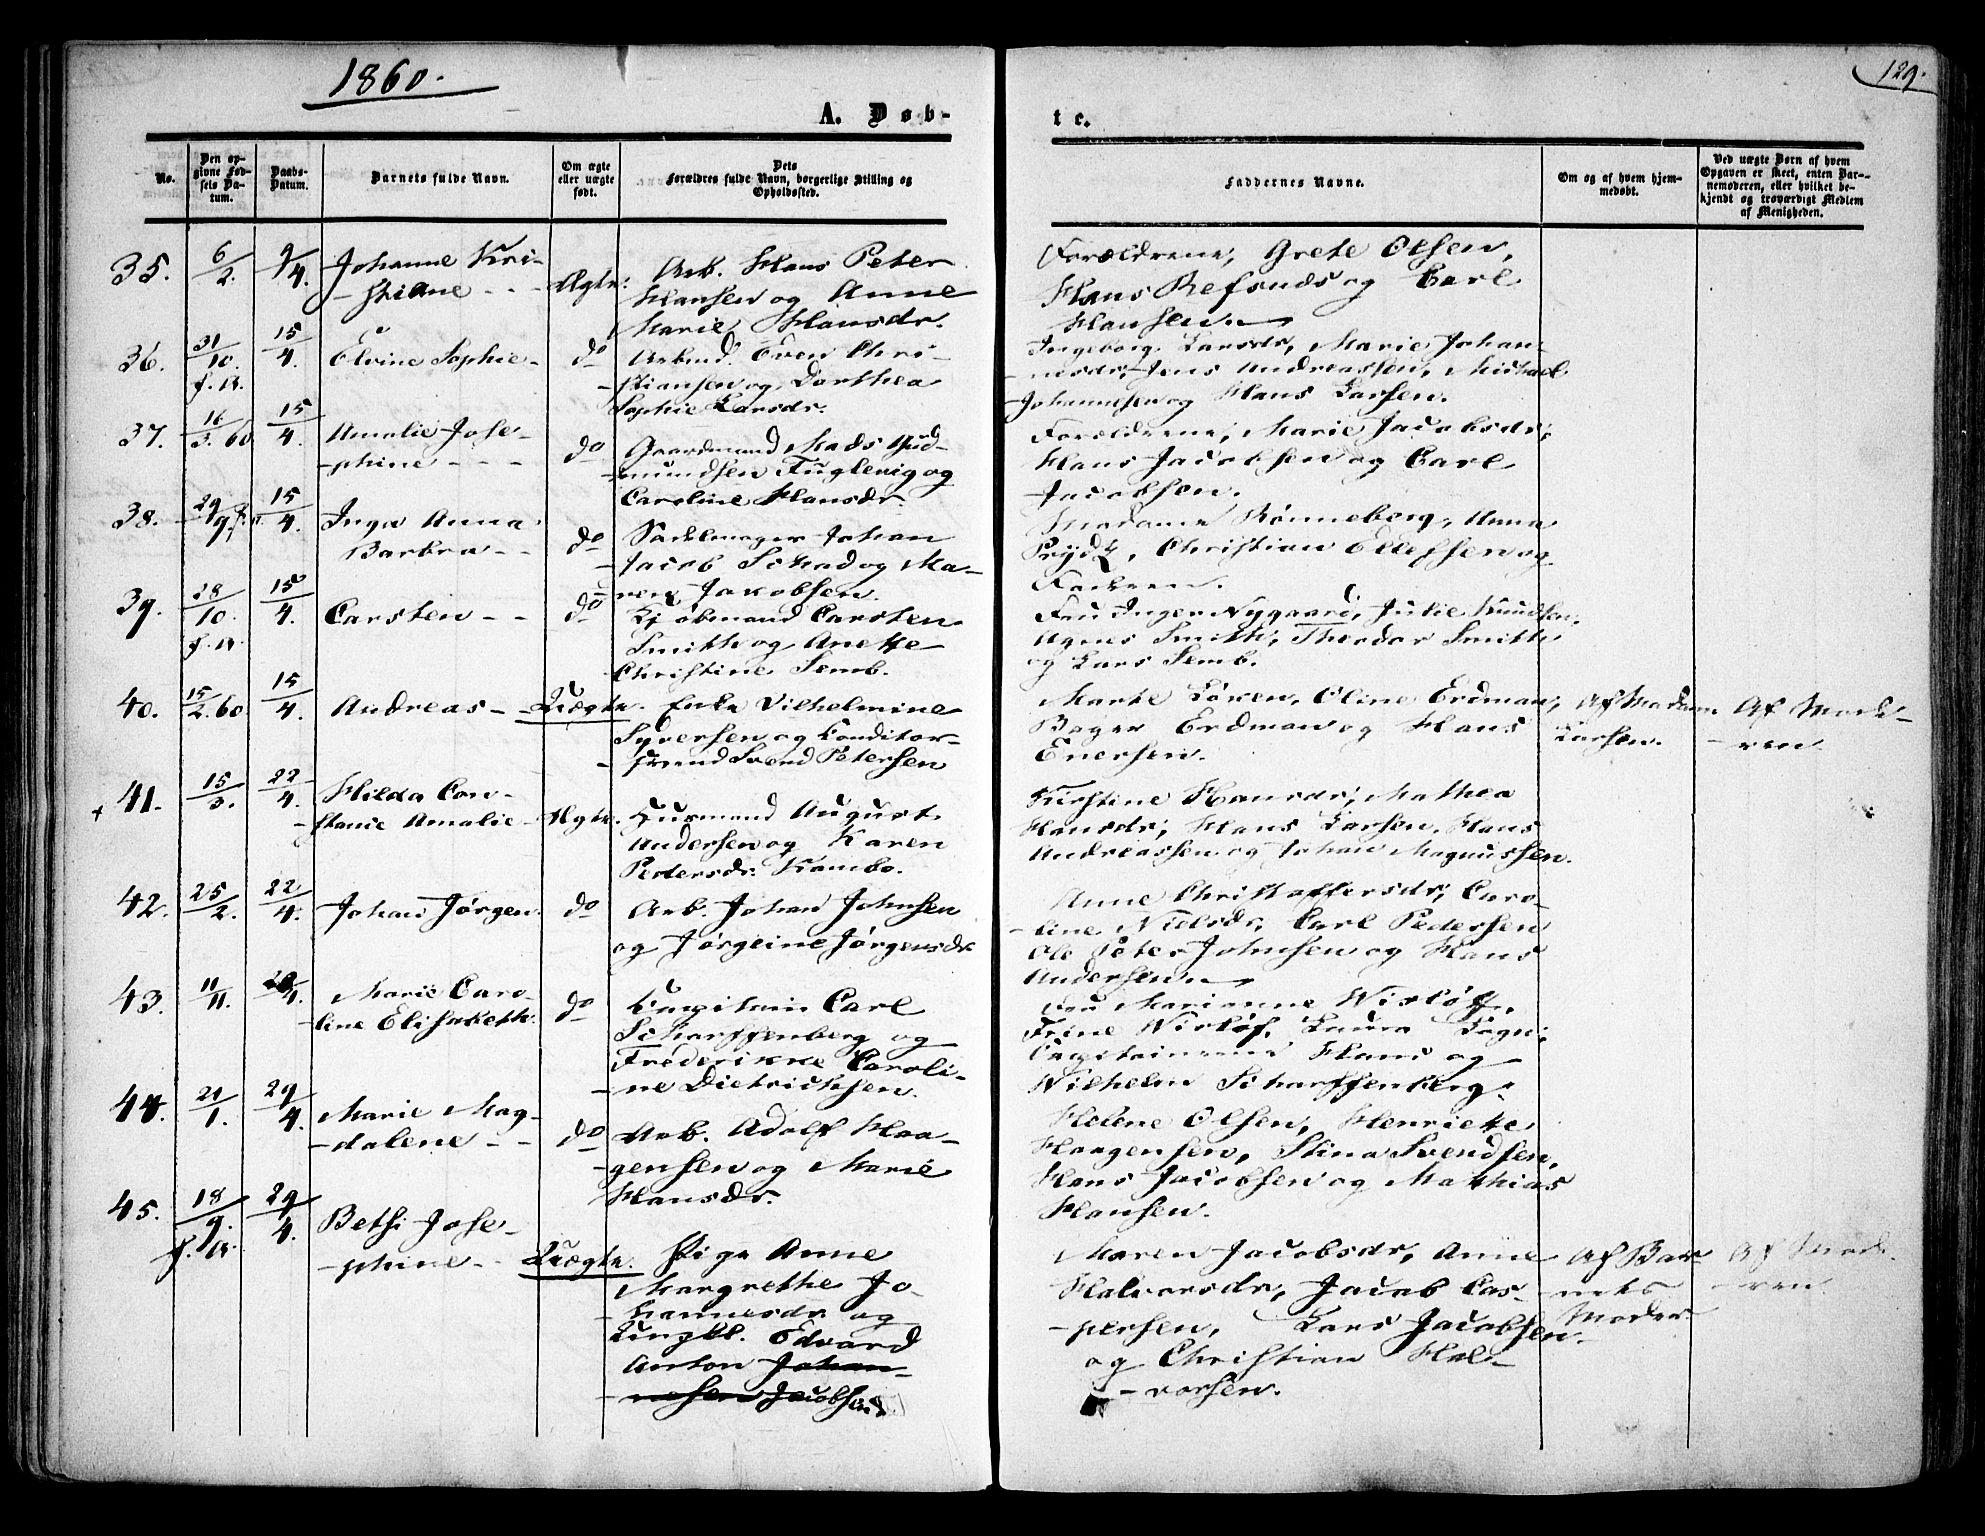 1860.
129.
A. Døb-
te.
No.
Den op-
givne Fød-
sels Da-
tum.
Daabs-
Datum.
Barnets fulde Navn.
Om ægte
eller uægte
født.
Dets
Forældres fulde Navn, borgerlige Stilling og
Opholdssted.
Faddernes Navne.
Om og af hvem hjem-
medøbt.
Ved uægte Børn af hvem
Opgaven er skeet, enten Bar-
nemoderen, eller hvilket be-
kjendt og troværdigt Medlem
af Menigheden.
35. 6/2. 9/4. Johanne Kri-
-stiane - - - Ægte.
Arb. Hans Peter
Hansen og Anne
Marie Hansdr.
Forældrene, Grete Olsen,
Hans Refsnes og Carl
Hansen.
36. 31/10 f. A. 15/4. Elvine Sophie - do
Arbmd. Even Chri-
-stiansen og Dorthea
Sophie Larsdr.
Ingeborg Larsdr, Marie Johan-
-nesdr, Jens Andreassen, Michael
Johannesen og Hans Larsen.
37. 16/3. 60 15/4. Amalie Jose-
-phine - - - do
Gaardmand Mads Gud-
-mundsen Fuglevig og
Caroline Hansdr.
Forældrene, Marie Jacobsdr,
Hans Jacobsen og Carl
Jacobsen.
38. 29/9 f. A. 15/4. Inga Anna
Barbra - - do
Sadelmager Johan
Jacob Schad og Ma-
-ren Jakobsen.
Madame Rønneberg, Anna
Prydz, Christian Ellefsen og
Faderen.
39. 28/10. f. A. 15/4. Carsten - - do
Kjøbmand Carsten
Smith og Anette
Christine Semb.
Fru Inger Nygaard, Julie Knudsen,
Agnes Smith, Theodor Smith
og Lars Semb.
40. 15/2. 60 15/4. Andreas - Uægte.
Enke Vilhelmine
Syversen og Conditor-
-svend Svend Petersen
Marte Løken, Oline Erdman,
Bager Erdman og Hans
Enersen.
Af Madam
Larsen.
Af Mode-
-ren.
+ 41. 15/3. 22/4. Hilda Con-
-stance Amalie - Ægte.
Husmand August
Andersen og Karen
Pedersdr. Kambo.
Kirstine Hansdr, Mathea
Hansdr, Hans Larsen, Hans
Andreassen og Johan Magnussen.
42. 25/2. 22/4. Johan Jørgen. do
Arb. Johan Johnsen
og Jørgine Jørgensdr
Anne Christoffersdr, Caro-
-line Nielsdr, Carl Pedersen
Ole Peter Johnsen og Hans
Andersen
43. 11/11. Marie Caro-
-line Elisabeth. do
Capitain Carl
Scharffenberg og
Frederikke Caroli-
-ne Dietrichsen.
Fru Marianne Wisløff,
Trine Wisløf, Laura
Capitainerne Hans og
Wilhelm Scharffenberg.
44. 21/1. 29/4. Marie Mag-
-dalene - - do
Arb. Adolf Haa-
-gensen og Marie
Hansdr.
Helene Olsen, Henriette
Haagensen, Stina Svendsen,
Hans Jacobsen og Mathias
Hansen.
45. 18/9. f. A. 29/4. Bethi Jose-
-phine - - Uægte.
Pige Anne
Margrethe Jo-
-hannesdr og
Ungkl. Edvard
Anton Johan-
-nesen Jacobsen
Maren Jacobsdr, Anne
Halvorsdr, Jacob Cas-
-persen, Lars Jacobsen
og Christian Hal-
-vorsen.
Af Bar-
nets
Moder.
Af Mode-
-ren.